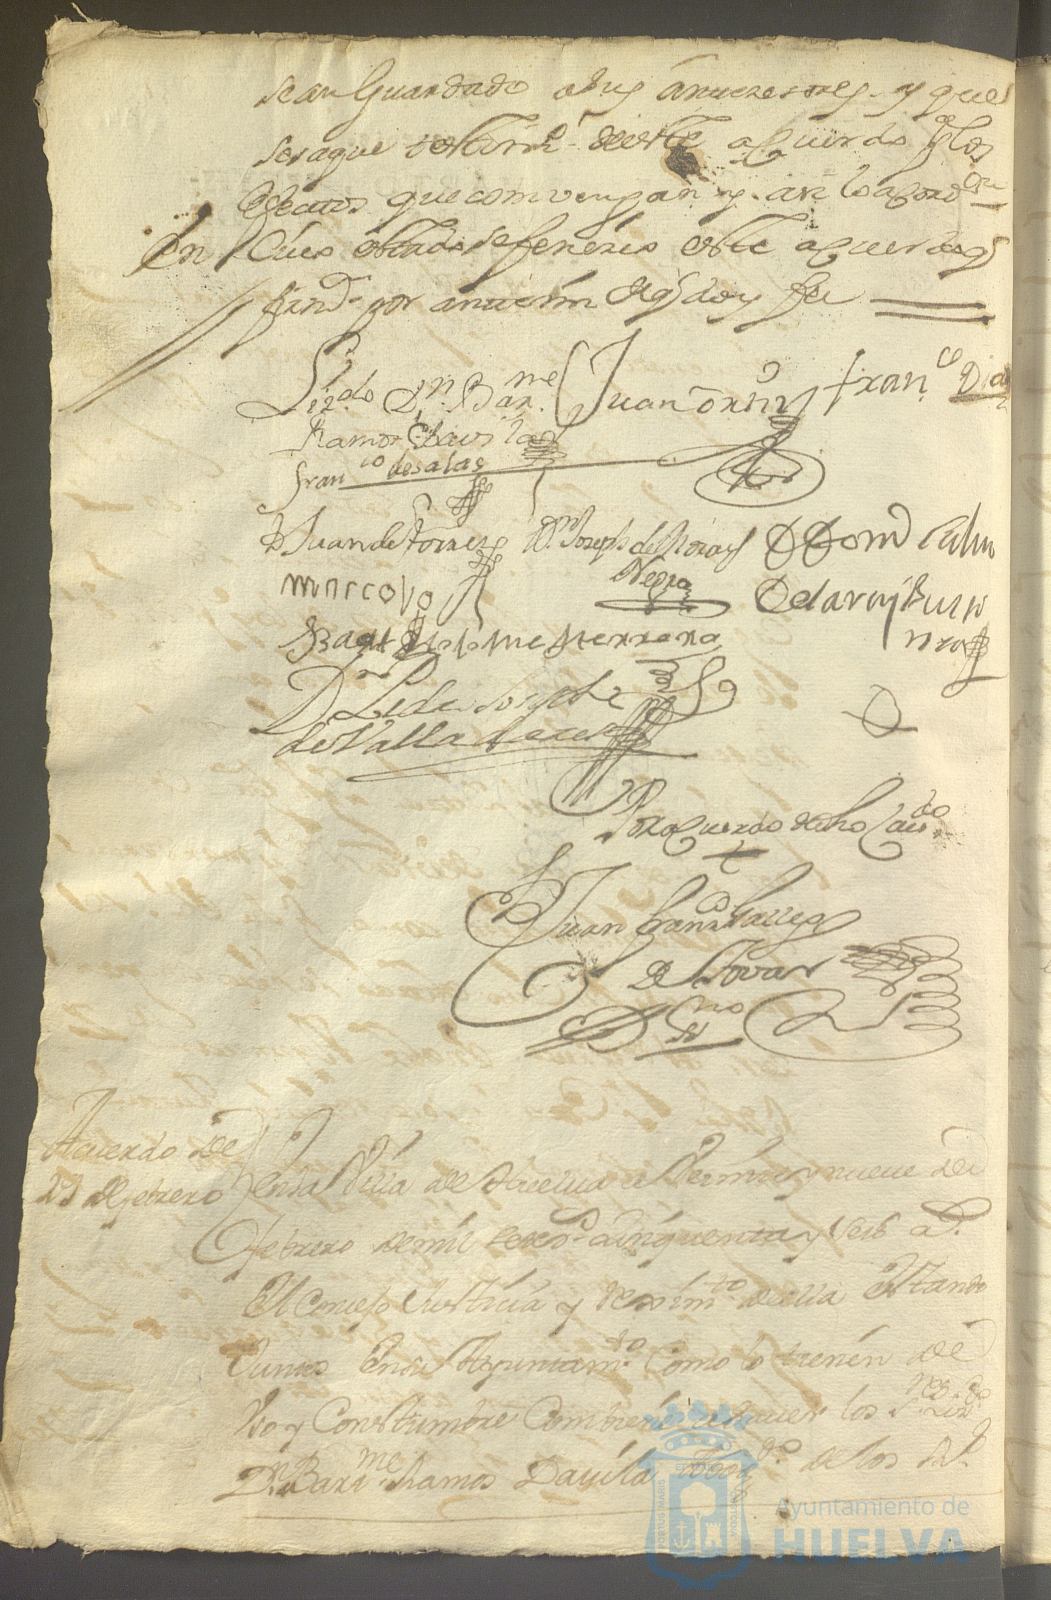 sean Guardado a sus antezesores. y que
se saque testim.º de este acuerdo p.ª los
efectos que convengan y asi lo acord.on
En Cuio estado se fenezio este acuerdo q.
firm.n por ante mi de q. doy fee
Liz.do D.n Bar.me Juan Franco Dias
Ramos Davila
Fran.co de Salas
D Juan de Torres D.n Joseph de
Negro
Marcos
Bartolome Herrera
de Valladares
Por Acuerdo de dho Cav.do
Juan
De Tovar
S.no
Acuerdo de
29 de febrero
En la Villa de Huelva a Veinte y nueve de
febrero de mil setez.s cinquenta y seis a.s
El Concejo Justicia y Reximto de ella estando
Juntos En su Ayuntam.to Como lo tienen de
Uso y Constumbre Combiene a saver los S.res Liz.do
D.n Bar.me Ramos Davila Abog.do de los R.s
Ayuntamiento de
HUELVA